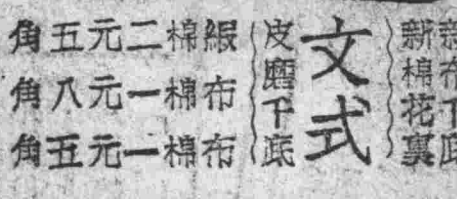 新棉花裏
文式
皮千底
緞棉二元五角
布棉一元八角
布棉一元五角